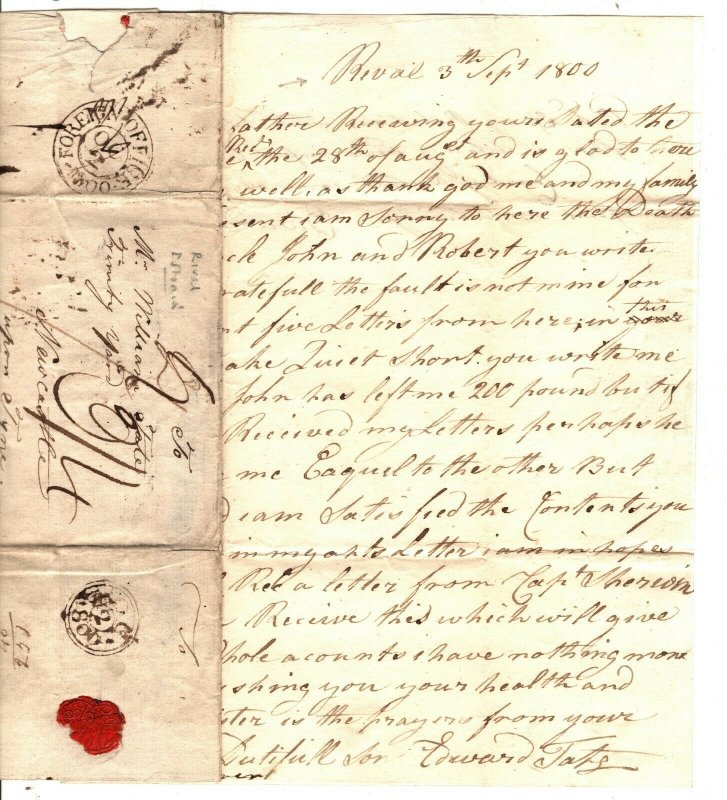 Reval 3th Sept 1800
father Receiving yours Dated the
Recd the 28th of augst and is glad to here
well, as thank god me and my family
esent i am Sorry to here the Death
John and Robert you write
ratefull the fault is not mine for
nt five Letters from here, in this
ake Quiet Short. you write me
John has left me 200 pound but if
Received my Letters perhaps he
me Eaquel to the other But
i am Satisfied the Contents you
in my Letter i am in hopes
Rec a letter from Capt Sherwin
Receive this which will give
hole acounts i have nothing more
shing you your health and
ster is the prayers from your
Dutifull Son Edward Tate
FOREIGN OFFICE
1800
Reval
To
Mr William Tate
Trinity Yard
Newcastle
upon Tyne
To